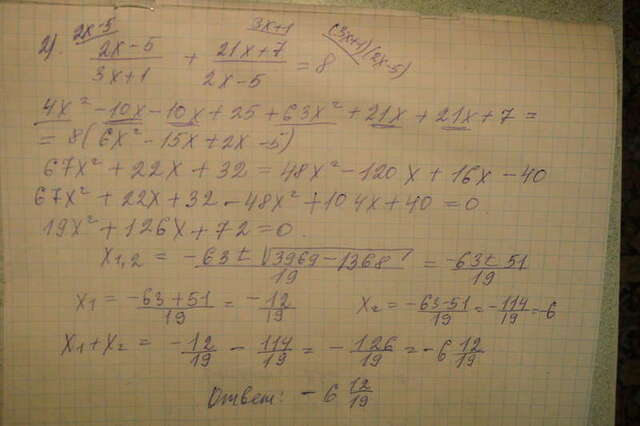 2x-5 3x+1 (3x+1)(2x-5)
2). \frac{2x-5}{3x+1} + \frac{21x+7}{2x-5} = 8
4x² - 10x - 10x + 25 + 63x² + 21x + 21x + 7 =
= 8(6x² - 15x + 2x - 5)
67x² + 22x + 32 = 48x² - 120x + 16x - 40
67x² + 22x + 32 - 48x² + 104x + 40 = 0
19x² + 126x + 72 = 0
x₁,₂ = \frac{-63 ± √3969-1368}{19} = \frac{-63 ± 51}{19}
x₁ = \frac{-63+51}{19} = -\frac{12}{19} x₂ = \frac{-63-51}{19} = \frac{-114}{19} = -6
x₁ + x₂ = -\frac{12}{19} - \frac{114}{19} = -\frac{126}{19} = -6\frac{12}{19}
Ответ: -6\frac{12}{19}